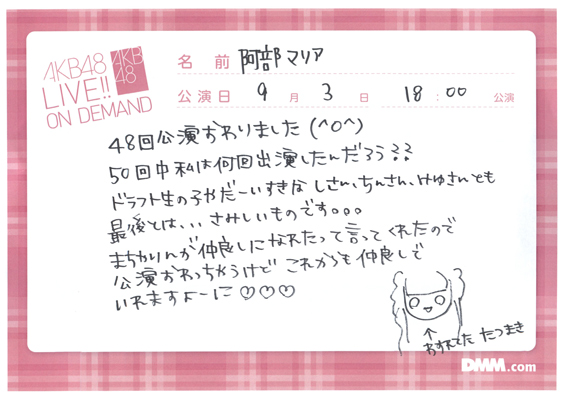 AKB48
LIVE!!
ON DEMAND
AKB
48
名前 阿部マリア
公演日 9月 3日 18:00 公演
48回公演おわりました(^o^)
50回中私は何回出演したんだろう??
ドラフト生の子やだーいすきな しさん、ちんさん、みゆさんとも
最後とは、、、さみしいものです。。。
まちかりんが仲良しになれたって言ってくれたので
公演おわっちゃうけど これからも仲良しで
いれますよーに♡♡♡
↑
おすれてた たつまき
DMM.com